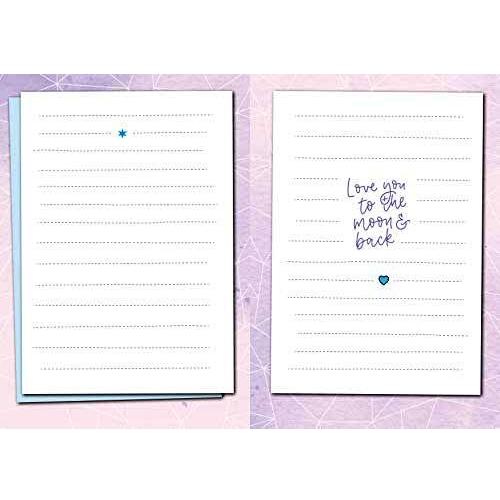 Love you
to the
moon &
back